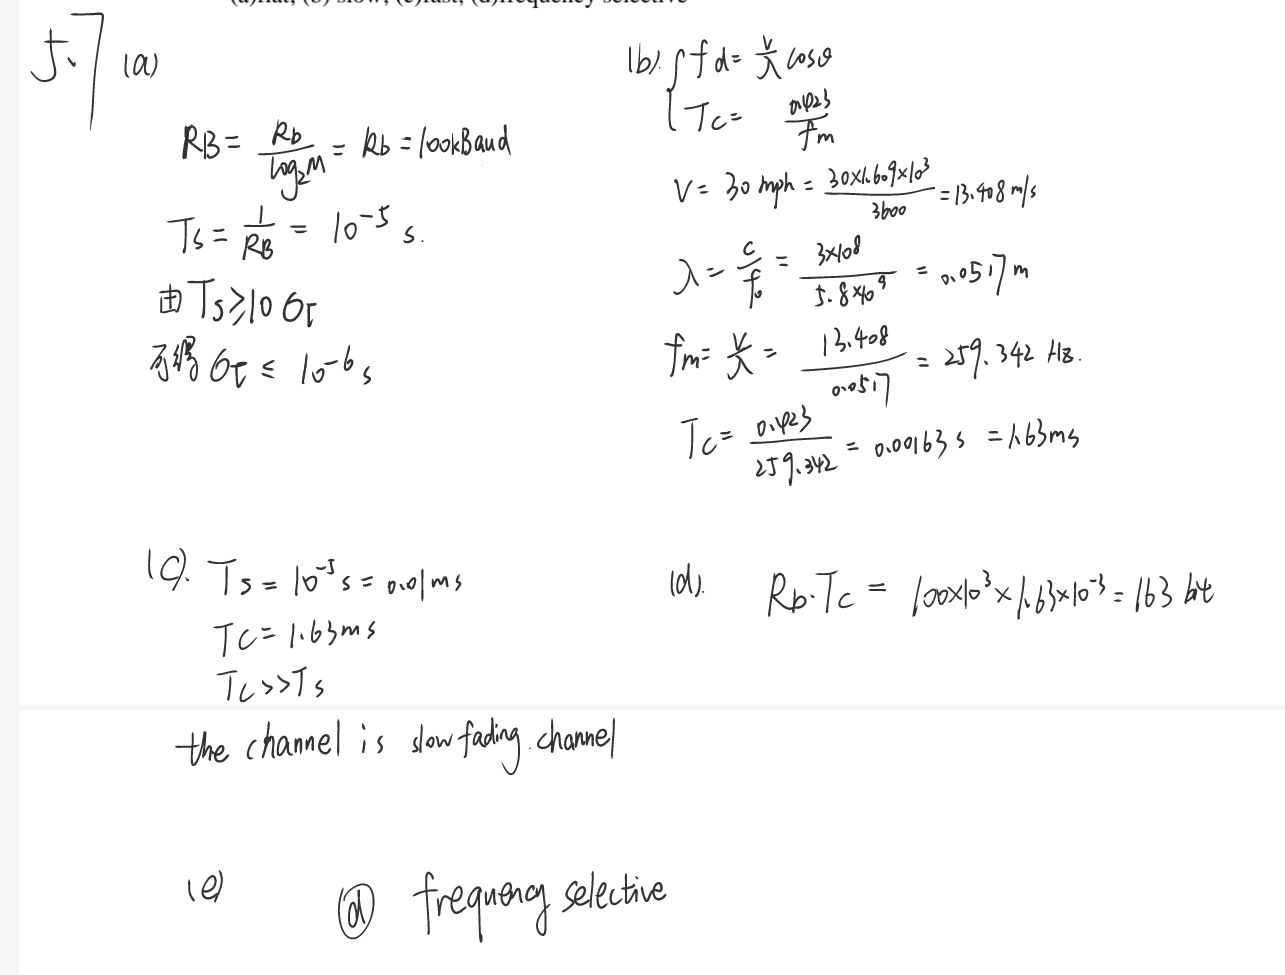 (a)flat, (b) slow, (c)fast, (d)frequency selective
5.7 (a)
RB = Rb / log₂M = Rb = 100kBaud
Ts = 1 / RB = 10⁻⁵ s.
由 Ts ≥ 10 στ
στ ≤ 10⁻⁶ s
(b). { fd = v/λ cosθ
Tc = 0.423 / fm
V = 30 mph = 30×1.609×10³ / 3600 = 13.408 m/s
λ = c / f₀ = 3×10⁸ / 5.8×10⁹ = 0.0517 m
fm = v/λ = 13.408 / 0.0517 = 259.342 Hz.
Tc = 0.423 / 259.342 = 0.00163 s = 1.63ms
(c). Ts = 10⁻⁵ s = 0.01ms
Tc = 1.63ms
Tc >> Ts
the channel is slow fading channel
(d). Rb·Tc = 100×10³×1.63×10⁻³ = 163 bit
(e) ⓓ frequency selective